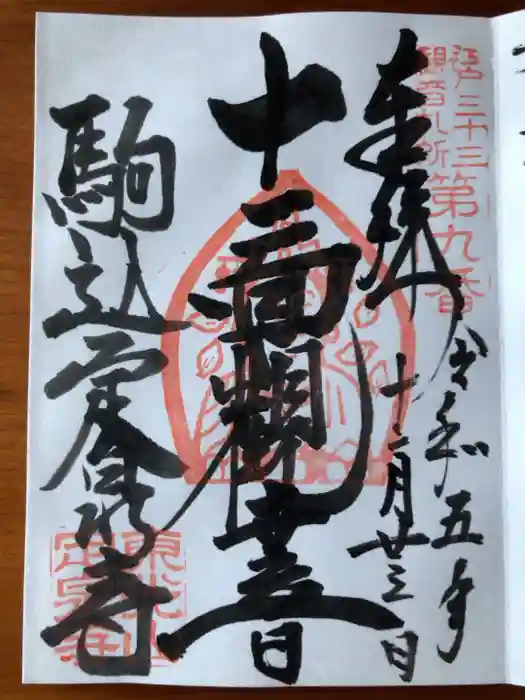 江戸三十三
観音札所
第九番
奉拝
令和五年
十二月廿三日
十一面観音
駒込定泉寺
東光山
定泉寺